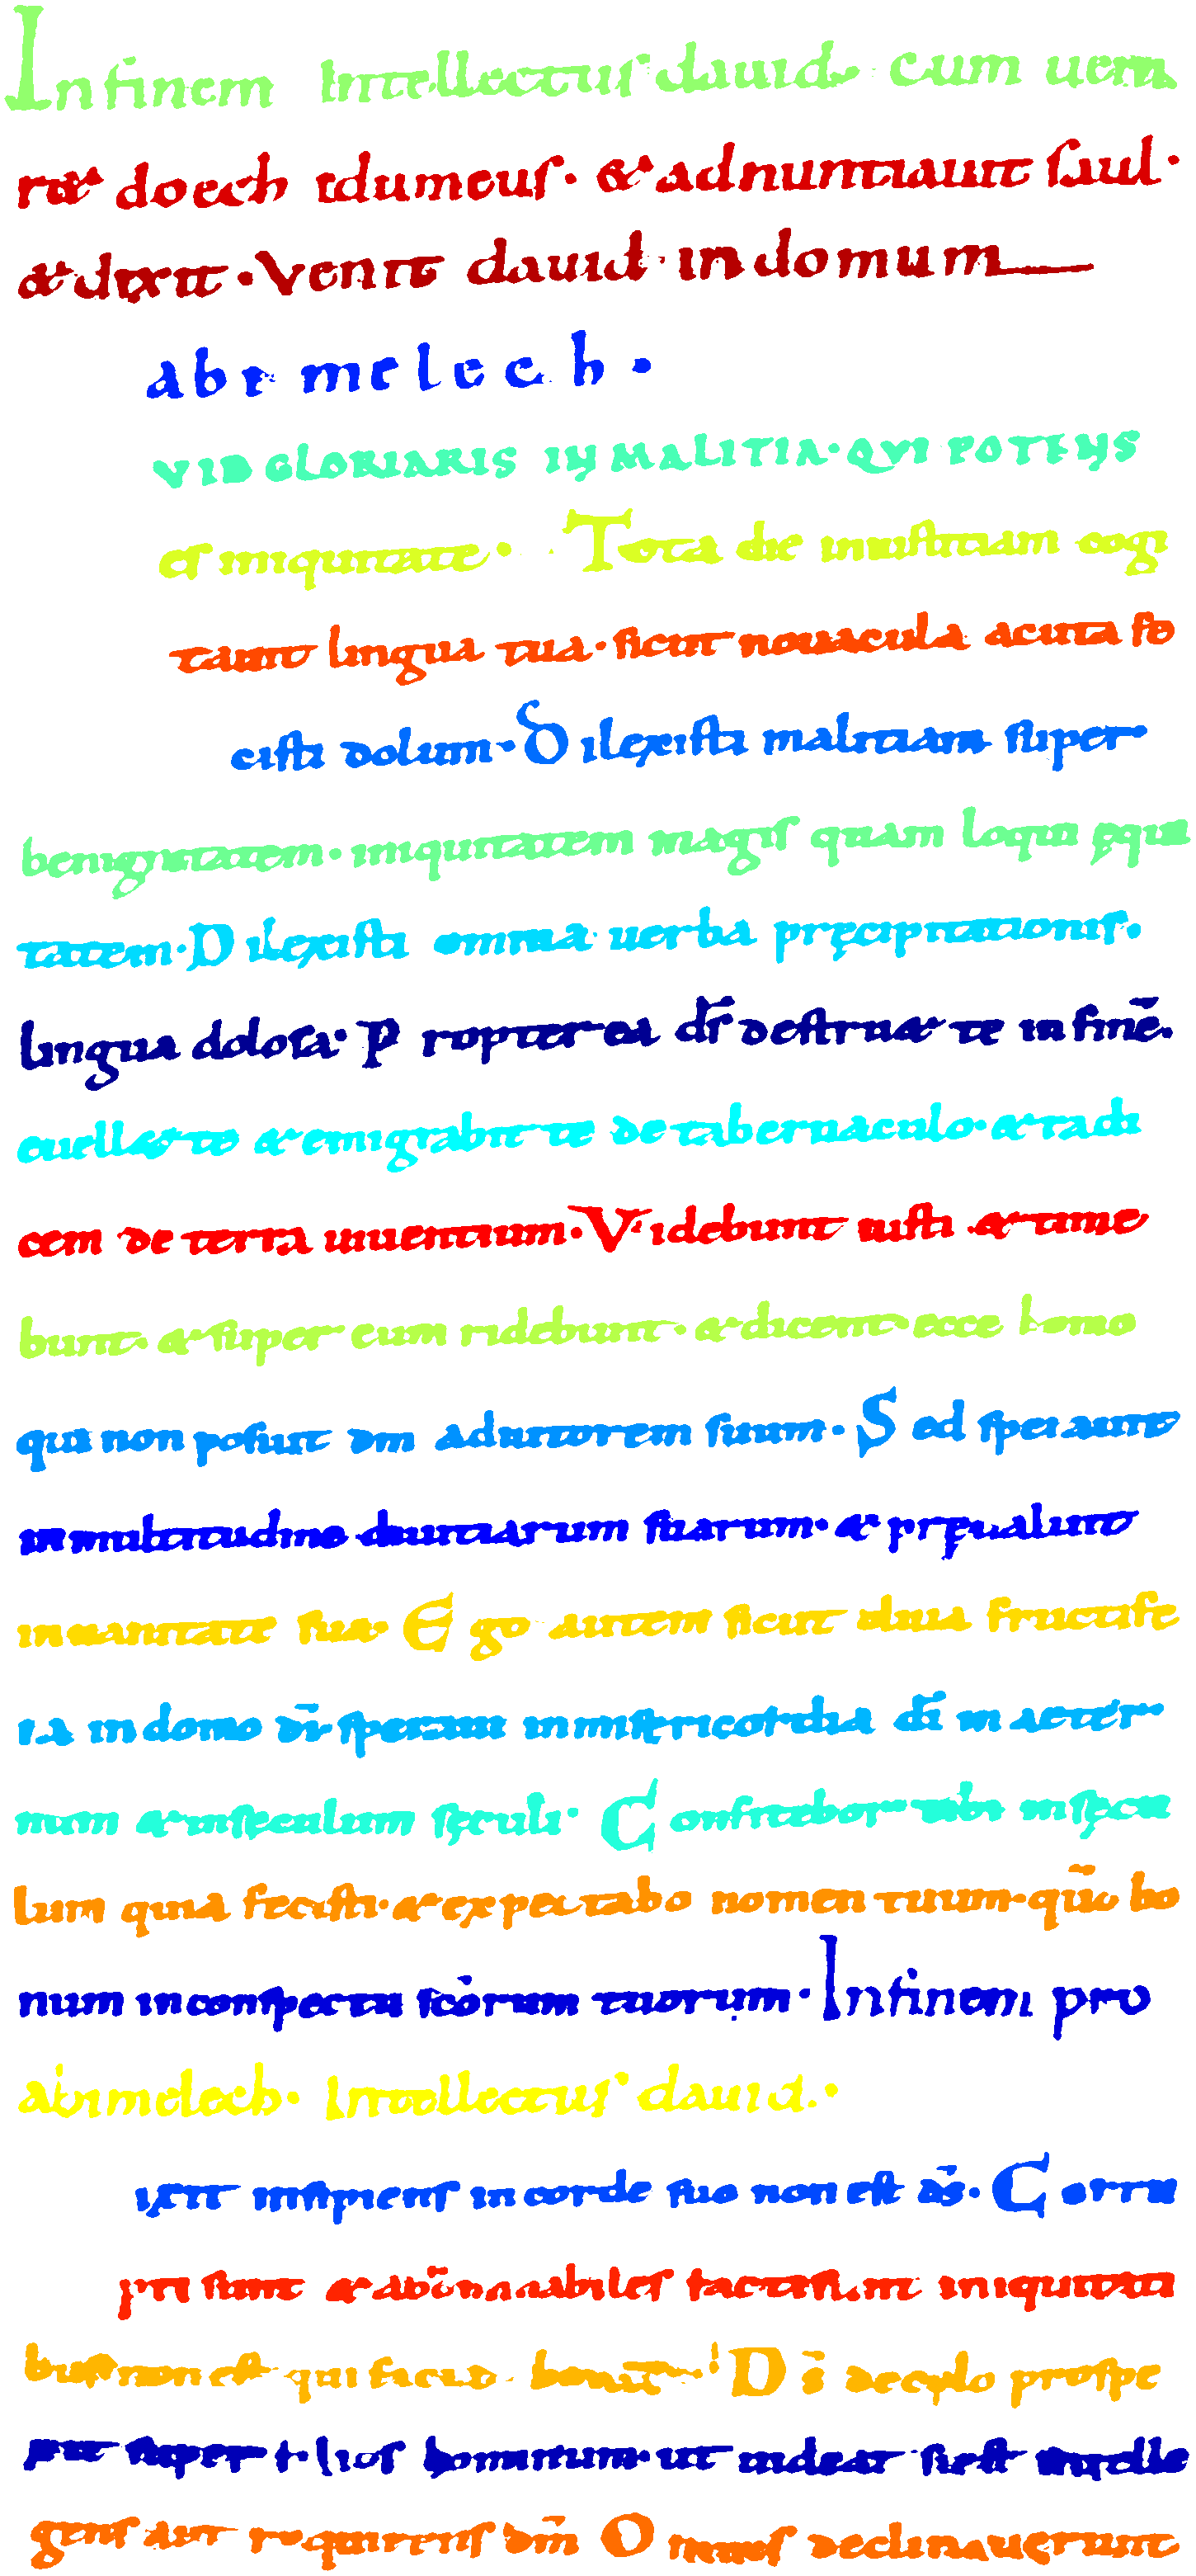 In finem Intellectus dauid cum ueni
r& doech idumeus · & adnuntiauit saul ·
& dixit · Venit dauid in domum
abimelech ·
VID GLORIARIS IN MALITIA · QVI POTENS
es iniquitate · Tota die iniustitiam cogi
tauit lingua tua · sicut nouacula acuta fe
cisti dolum · Dilexisti malitiam super
benignitatem · iniquitatem magis quam loqui ęqui
tatem · Dilexisti omnia uerba pręcipitationis ·
lingua dolosa · Propterea d̄s destru& te in finē ·
euell& te & emigrabit te de tabernaculo · & radi
cem de terra uiuentium · Videbunt iusti & time
bunt · & super eum ridebunt · & dicent ecce homo
qui non posuit dm adiutorem suum · Sed sperauit
in multitudine diuitiarum suarum · & pręualuit
in uanitate sua · Ego autem sicut oliua fructife
ra in domo dī speraui in misericordia dī in aeter
num & in sęculum sęculi · Confitebor tibi in sęcu
lum quia fecisti · & expectabo nomen tuum · qūo bo
num in conspectu sc̄orum tuorum · In finem pro
abimelech · Intellectus dauid ·
ixit insipiens in corde suo non est d̄s · Corru
pti sunt & abōminabiles facti sunt in iniquitati
bus non est qui faciat bonū · D̄s de cęlo prospe
xit super filios hominum · ut uideat si est intelle
gens aut requirens dm̄ Omnes declinauerunt